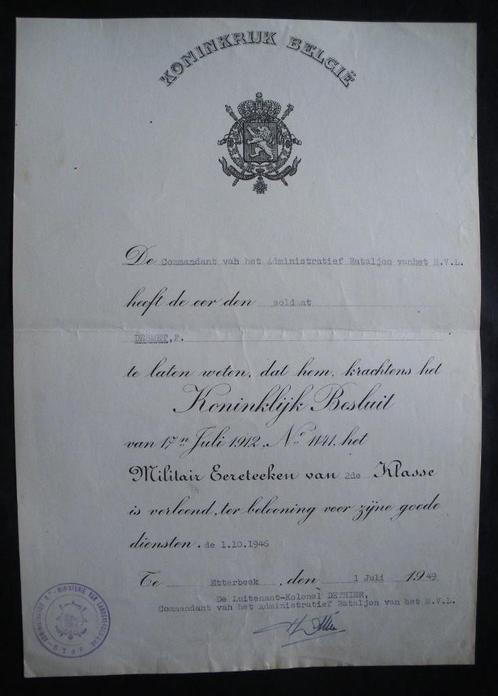 KONINKRIJK BELGIË
De Commandant vah het Administratief Bataljon vanhet M.V.L.
heeft de eer den soldaat
DESMET, F.
te laten weten, dat hem, krachtens het
Koninklijk Besluit
van 17n Juli 1912, No 1141, het
Militair Eereteeken van 2de Klasse
is verleend, ter belooning voor zijne goede
diensten. de 1.10.1946
Te Etterbeek, den 1 Juli 1949
De Luitenant-Kolonel DETHIER,
Commandant vah het Administratief Bataljon van het M.V.L.